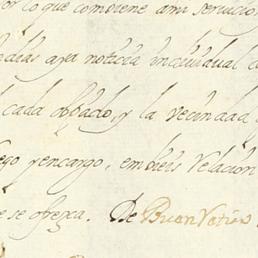 or lo que combiene a mi servicio
dias aya noticia indiuidual
cada obpado, y la vecindad
ego y encargo, embieis relación
se ofrezca. De Buen Retiro